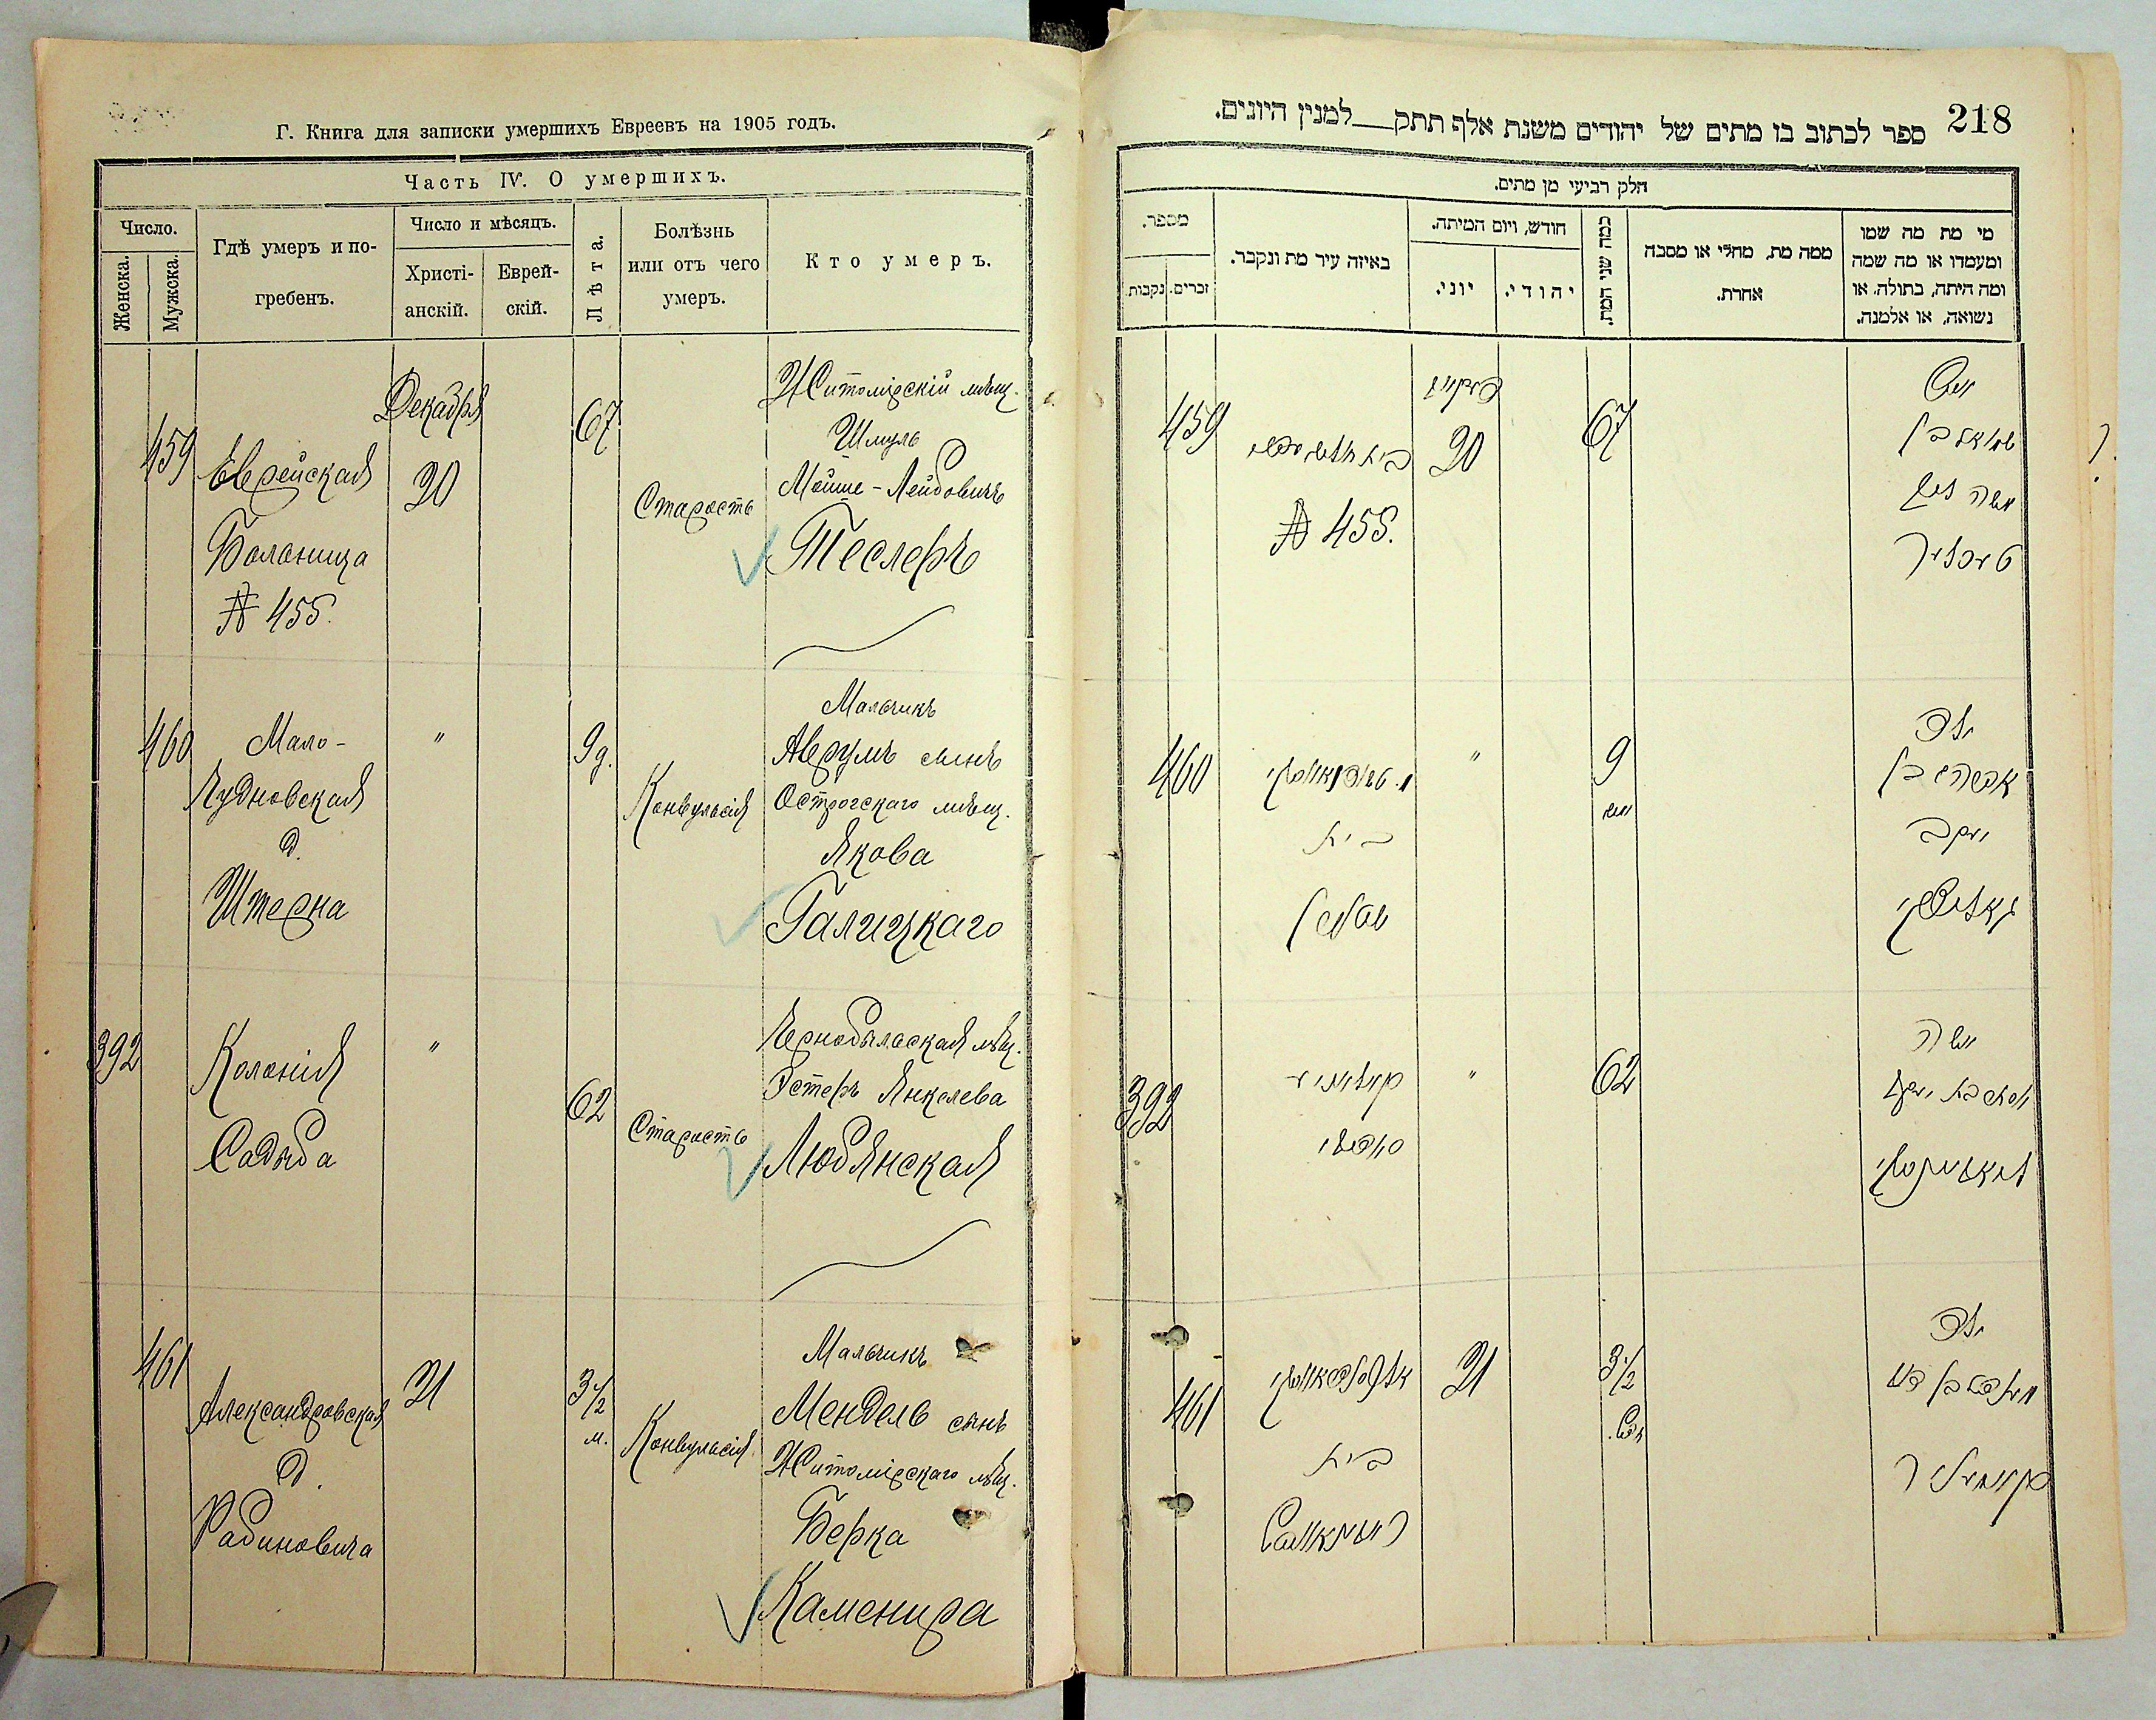 Г. Книга для записки умершихъ Евреевъ на 1905 годъ.
Часть IV. О умершихъ.
Число.
Женска.
Мужска.
Гдѣ умеръ и по-
гребенъ.
Число и мѣсяцъ.
Христі-
анскій.
Еврей-
скій.
Лѣта.
Болѣзнь
или отъ чего
умеръ.
Кто умеръ.
459
Еврейская
Болница
№ 455.
Декабря
20
67
Старость
Житомірскій мѣщ.
Шмуль
Мойше-Лейбовичъ
Теслеръ
460
Мало-
Чудновская
д.
Штерна
"
9 д.
Конвульсія
Мальчикъ
Аврумъ сынъ
Острогскаго мѣщ.
Якова
Галицкаго
392
Колонія
"
62
Старость
Чернобыльская мѣщ.
Эстеръ Янкелева
Любянская
461
Александровская
д.
Рабиновича
21
3 1/2
м.
Конвульсія
Мальчикъ
Мендель сынъ
Житомірскаго мѣщ.
Берка
218
ספר לכתוב בו מתים של יהודים משנת אלף תתק__למנין היונים.
חלק רביעי מן מתים.
מי מת מה שמו
ומעמדו או מה שמה
ומה היתה, בתולה, או
נשואה, או אלמנה.
ממה מת, מחלי או מסבה
אחרת.
כמה שני המת.
חודש, ויום המיתה.
יהודי.
יוני.
באיזה עיר מת ונקבר.
מספר.
זכרים.
נקבות.
איש
שמואל בן
משה לייב
טעסלער
67
20
№ 455.
459
ילד
אברהם בן
יעקב
גאליצקי
9
"
בית
שטערן
460
אשה
62
"
392
ילד
3 1/2
חדש.
21
בית
461